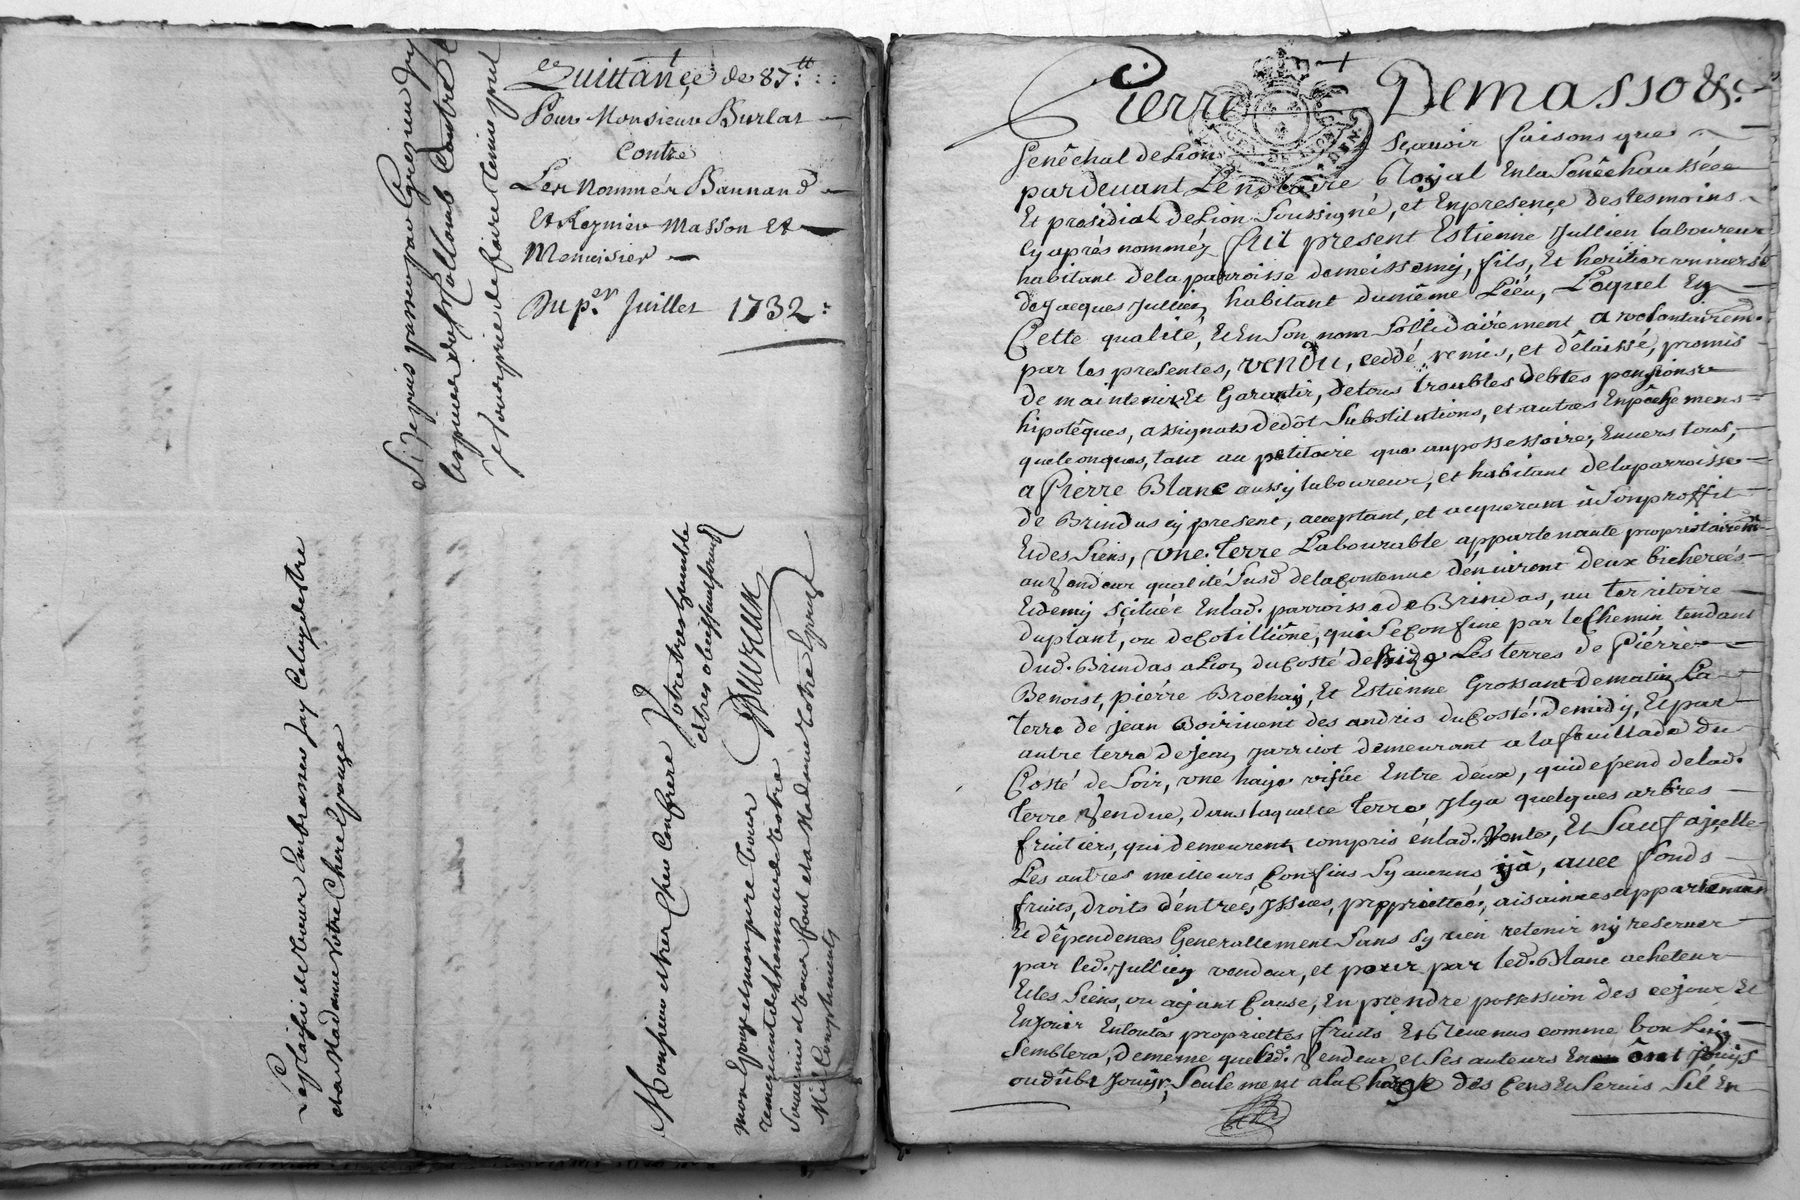 Quittançe de 87tt
Pour Monsieur Burlat
Contre
Les Nommés Bannand
Et Reynier Masson Et
Menuisier
Du per Juillet 1732
Si depuis
je vous prie de faire tenir pour
Le plaisir et de vous Embrasser
et a Madame votre Chere Epouze
Monsieur et tres Cher Confrere
Votre tres humble
et tres obeissant
mon Epouze et mon pere vous
remercient de l'honneur de votre
Souvenir et vous font et a Madame votre Epouze
Mil Compliments
Pierre Demasso &c.
senêchal de Lion sçavoir faisons que
pardevant Le notaire Royal En la Senêchaussée
Et presidial de Lion Soussigné, et En presençe des tesmoins
Cy aprés nommés fut present Estienne Jullien laboureur
habitant de la parroisse de meissemy, fils, Et heritier universel
de Jacques Jullien habitant du même Liëu, Lequel En
Cette qualité, Et En Son nom Sollidairement a volontairem.
par les presentes, vendu, ceddé, remis, et délaissé, promis
de maintenir Et Garentir, de tous troubles debtes pensions
hipotêques, assignats dedôt Substitutions, et autres Enpêchemens
quelconques, tant au petitoire que au possessoire, Envers tous,
a Pierre Blanc aussy laboureur, et habitant de la parroisse
de Brindas cy present, acceptant, et acquerant à Son proffit
Et des Siens, une terre Labourable appartenante proprietairem
au Vendeur qualité Susd. de la Contenue d'énviront deux bicherées
Et demy sçituée En lad. parroisse de Brindas, au territoire
du plant, ou de Cotilliône, qui Se Confine par le Chemin tendant
dud. Brindas a Lion du Costé de bize Les terres de Piérre
Benoist, piérre Brochay, Et Estienne Grossant de matin La
terre de Jean Boirivent des andris du Costé de midy, Et par
autre terre de Jean Jarricot demeurant a la feuillade du
Costé de Soir, une haye vifve Entre deux, qui depend de lad.
terre Vendue, dans laquelle terre, Il y a quelques arbres
fruitiers, qui demeurent compris en lad. Vente, Et Sauf a icelle
Les autres meilleurs Confins Sy aucuns y a, avec fonds
fruits, droits d'éntrée, Issues, proprietteés, aisainces appartenans
Et dêpendences Generallement Sans sy rien retenir ny reserver
par led. Jullien vendeur, et pour par led. Blanc acheteur
Et les Siens, ou ayant Cause, En prendre possession des ce jour Et
En Jouir En toutes propriettes fruits Et Revenus comme bon Luy
Semblera, de même que led. Vendeur, et Ses auteurs En ônt jouÿs
ou dûbt Jouÿr, Seulement a la Charge des Cens En Servis S'il En